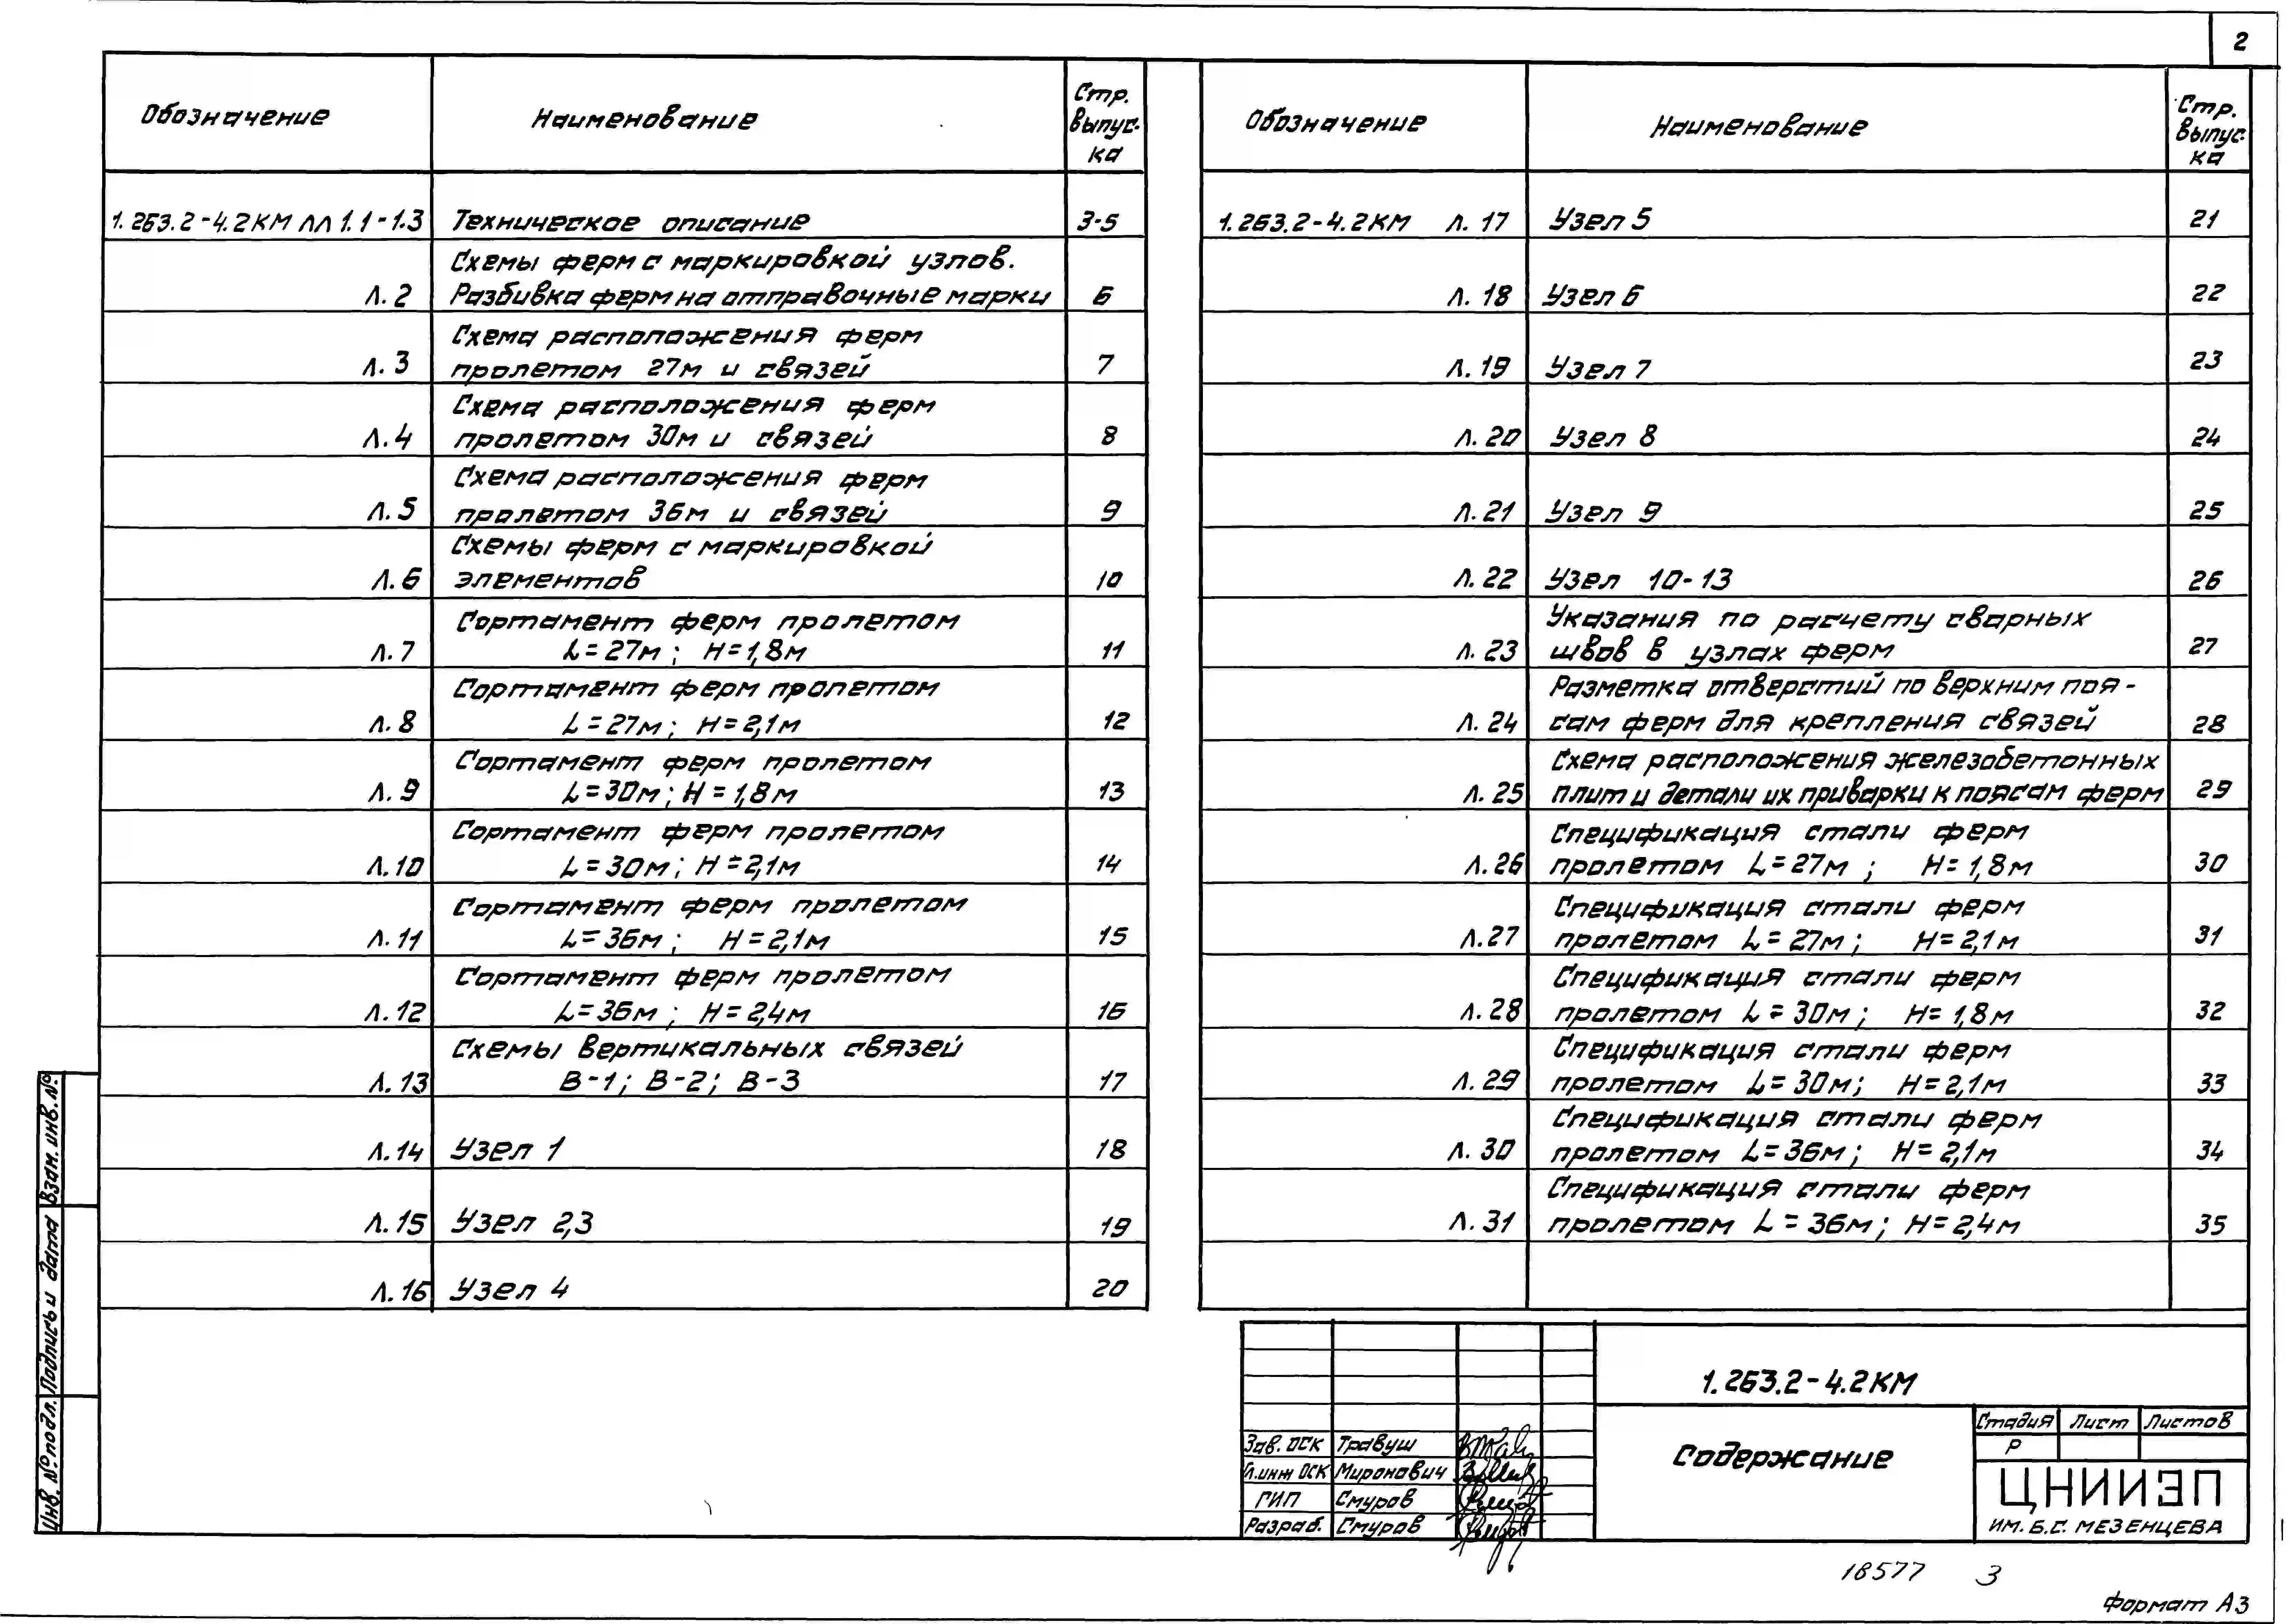 2
Обозначение Наименование Стр. выпус-ка
1.263.2-4.2КМ лл 1.1-1.3 Техническое описание 3-5
Схемы ферм с маркировкой узлов.
Л.2 Разбивка ферм на отправочные марки 6
Схема расположения ферм
Л.3 пролетом 27м и связей 7
Схема расположения ферм
Л.4 пролетом 30м и связей 8
Схема расположения ферм
Л.5 пролетом 36м и связей 9
Схемы ферм с маркировкой
Л.6 элементов 10
Сортамент ферм пролетом
Л.7 L=27м; H=1,8м 11
Сортамент ферм пролетом
Л.8 L=27м; H=2,1м 12
Сортамент ферм пролетом
Л.9 L=30м; H=1,8м 13
Сортамент ферм пролетом
Л.10 L=30м; H=2,1м 14
Сортамент ферм пролетом
Л.11 L=36м; H=2,1м 15
Сортамент ферм пролетом
Л.12 L=36м; H=2,4м 16
Схемы вертикальных связей
Л.13 В-1; В-2; В-3 17
Л.14 Узел 1 18
Л.15 Узел 2,3 19
Л.16 Узел 4 20
Обозначение Наименование Стр. выпус-ка
1.263.2-4.2КМ Л.17 Узел 5 21
Л.18 Узел 6 22
Л.19 Узел 7 23
Л.20 Узел 8 24
Л.21 Узел 9 25
Л.22 Узел 10-13 26
Указания по расчету сварных
Л.23 швов в узлах ферм 27
Разметка отверстий по верхним поя-
Л.24 сам ферм для крепления связей 28
Схема расположения железобетонных
Л.25 плит и детали их приварки к поясам ферм 29
Спецификация стали ферм
Л.26 пролетом L=27м; H=1,8м 30
Спецификация стали ферм
Л.27 пролетом L=27м; H=2,1м 31
Спецификация стали ферм
Л.28 пролетом L=30м; H=1,8м 32
Спецификация стали ферм
Л.29 пролетом L=30м; H=2,1м 33
Спецификация стали ферм
Л.30 пролетом L=36м; H=2,1м 34
Спецификация стали ферм
Л.31 пролетом L=36м; H=2,4м 35
Взам. инв. №
Подпись и дата
Инв. № подл.
1.263.2-4.2КМ
Зав. ОСК Травуш
Гл.инж ОСК Миронович
ГИП Смуров
Разраб. Смуров
Содержание
Стадия Лист Листов
Р
ЦНИИЭП
ИМ. Б.С. МЕЗЕНЦЕВА
18577 3
Формат А3